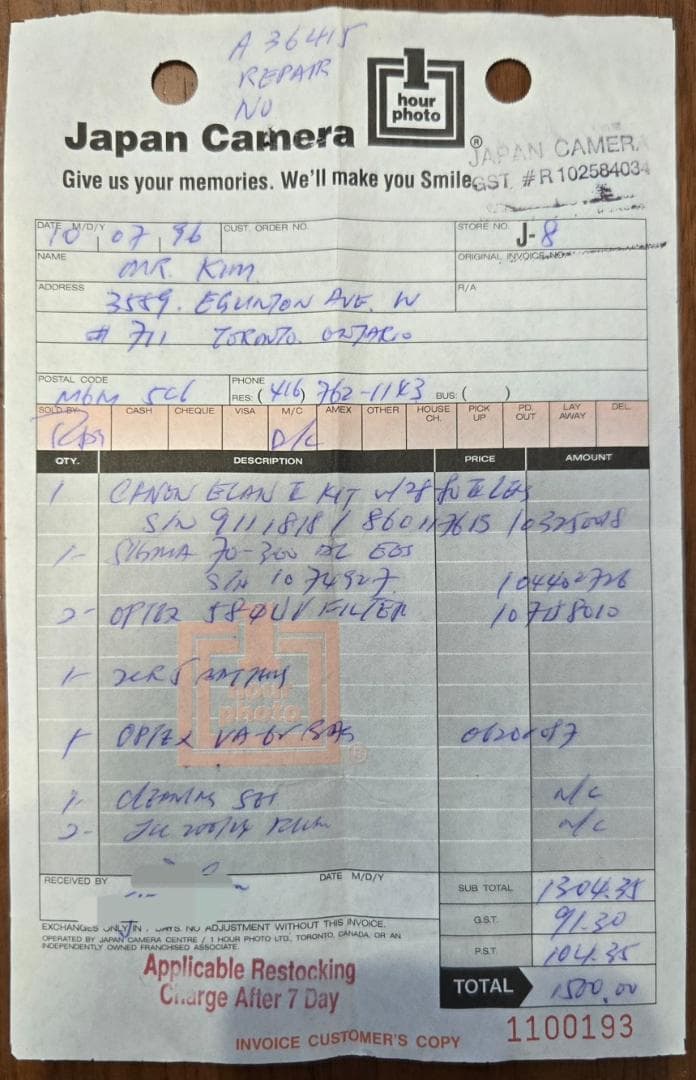 A 36415
REPAIR
NO
1
hour
photo
Japan Camera
®
JAPAN CAMERA
GST #R102584034
Give us your memories. We'll make you Smile.
DATE M/D/Y 10 07 96 CUST. ORDER NO. STORE NO. J-8
NAME MR. KIM ORIGINAL INVOICE NO.
ADDRESS 3559. EGLINTON AVE. W R/A
# 711 TORONTO. ONTARIO
POSTAL CODE M6M 5C6 PHONE RES: (416) 762-1143 BUS: ( )
SOLD BY CASH CHEQUE VISA M/C AMEX OTHER HOUSE CH. PICK UP PD. OUT LAY AWAY DEL.
D/C
QTY. DESCRIPTION PRICE AMOUNT
1 CANON ELAN II KIT w/28-80
S/N 9111818 / 860117615
1- SIGMA 70-300
S/N 1074927 104402726
2- OPTEX 58 UV FILTER
1-
1- OPTEX BAG
1- CLEANING SET n/c
2- n/c
hour
photo
®
RECEIVED BY DATE M/D/Y
SUB TOTAL 1304.35
G.S.T. 91.30
P.S.T. 104.35
TOTAL 1500.00
EXCHANGES ONLY IN DAYS. NO ADJUSTMENT WITHOUT THIS INVOICE.
OPERATED BY JAPAN CAMERA CENTRE / 1 HOUR PHOTO LTD., TORONTO, CANADA, OR AN
INDEPENDENTLY OWNED FRANCHISED ASSOCIATE.
Applicable Restocking
Charge After 7 Day
INVOICE CUSTOMER'S COPY
1100193